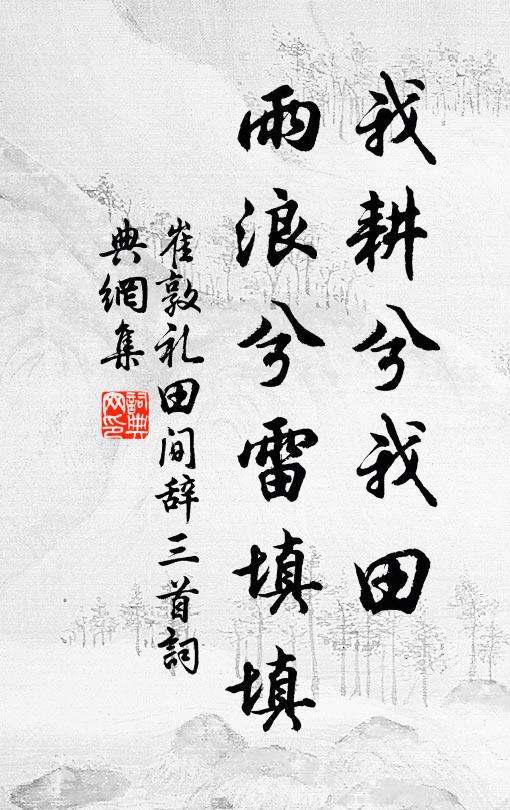 我耕兮我田
雨浪兮雷填填
崔敦礼田间辞三首詞
典網集
詞典网印